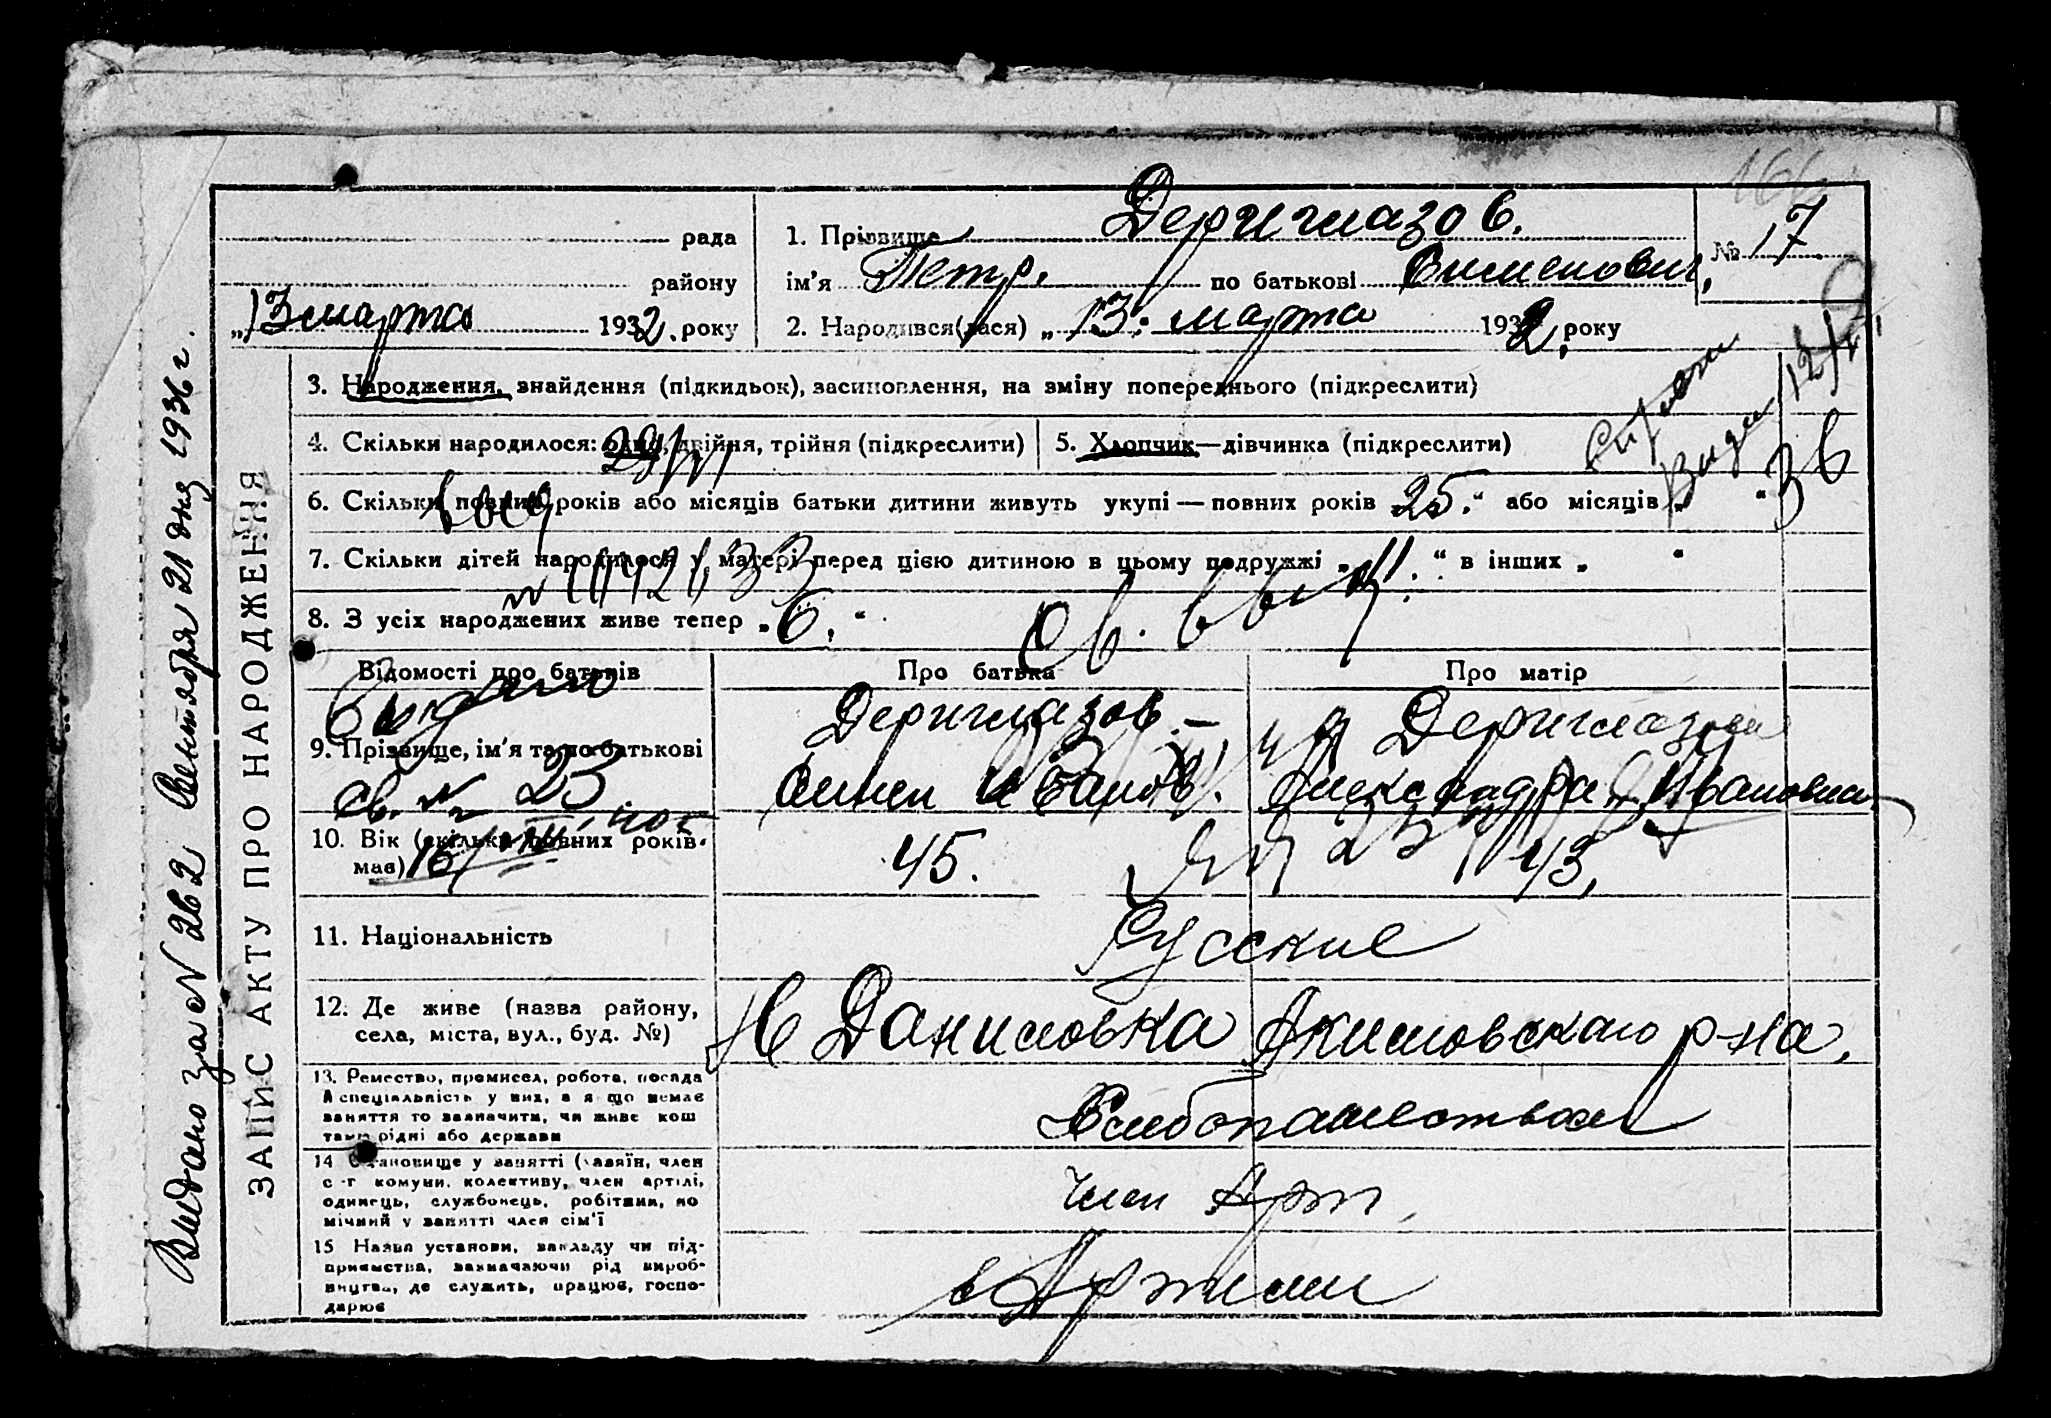 166
рада
1. Прізвище Дериглазов.
№ 17
району
ім'я Петр. по батькові Сименович,
„13 марта 1932. року
2. Народився(лася) „13. марта 1932, року
3. Народження, знайдення (підкидьок), засиновлення, на зміну попереднього (підкреслити)
4. Скільки народилося: одно, двійня, трійня (підкреслити)
5. Хлопчик—дівчинка (підкреслити)
6. Скільки повних років або місяців батьки дитини живуть укупі — повних років 25.“ або місяців „ “
36
7. Скільки дітей народилося у матері перед цією дитиною в цьому подружжі „11.“ в інших „ “
8. З усіх народжених живе тепер „6.“
Відомості про батьків
Про батька
Про матір
Видано
св. № 23
9. Прізвище, ім'я та по батькові
Дериглазов
Симен Иванов.
Дериглазова
Александра Ивановна
10. Вік (скільки повних років має)
45.
43,
11. Національність
Русские
12. Де живе (назва району,
села, міста, вул., буд. №)
Н Даниловка Акимовского р-на,
13. Ремество, промисел, робота, посада
й спеціальність у них, а якщо немає
заняття то зазначити, чи живе кош
тами рідні або держави
Хлебопашеством
14 Становище у занятті (хазяїн, член
с-г комуни, колективу, член артілі,
одинець, службовець, робітник, по
мічний у занятті член сім'ї
член Арт,
15 Назва установи, закладу чи під-
приємства, зазначаючи рід вироб-
ництва, де служить, працює, госпо-
дарює
в Артели
ЗАПИС АКТУ ПРО НАРОДЖЕННЯ
Выдано за № 262 Сентября 21 дня 1936 г.